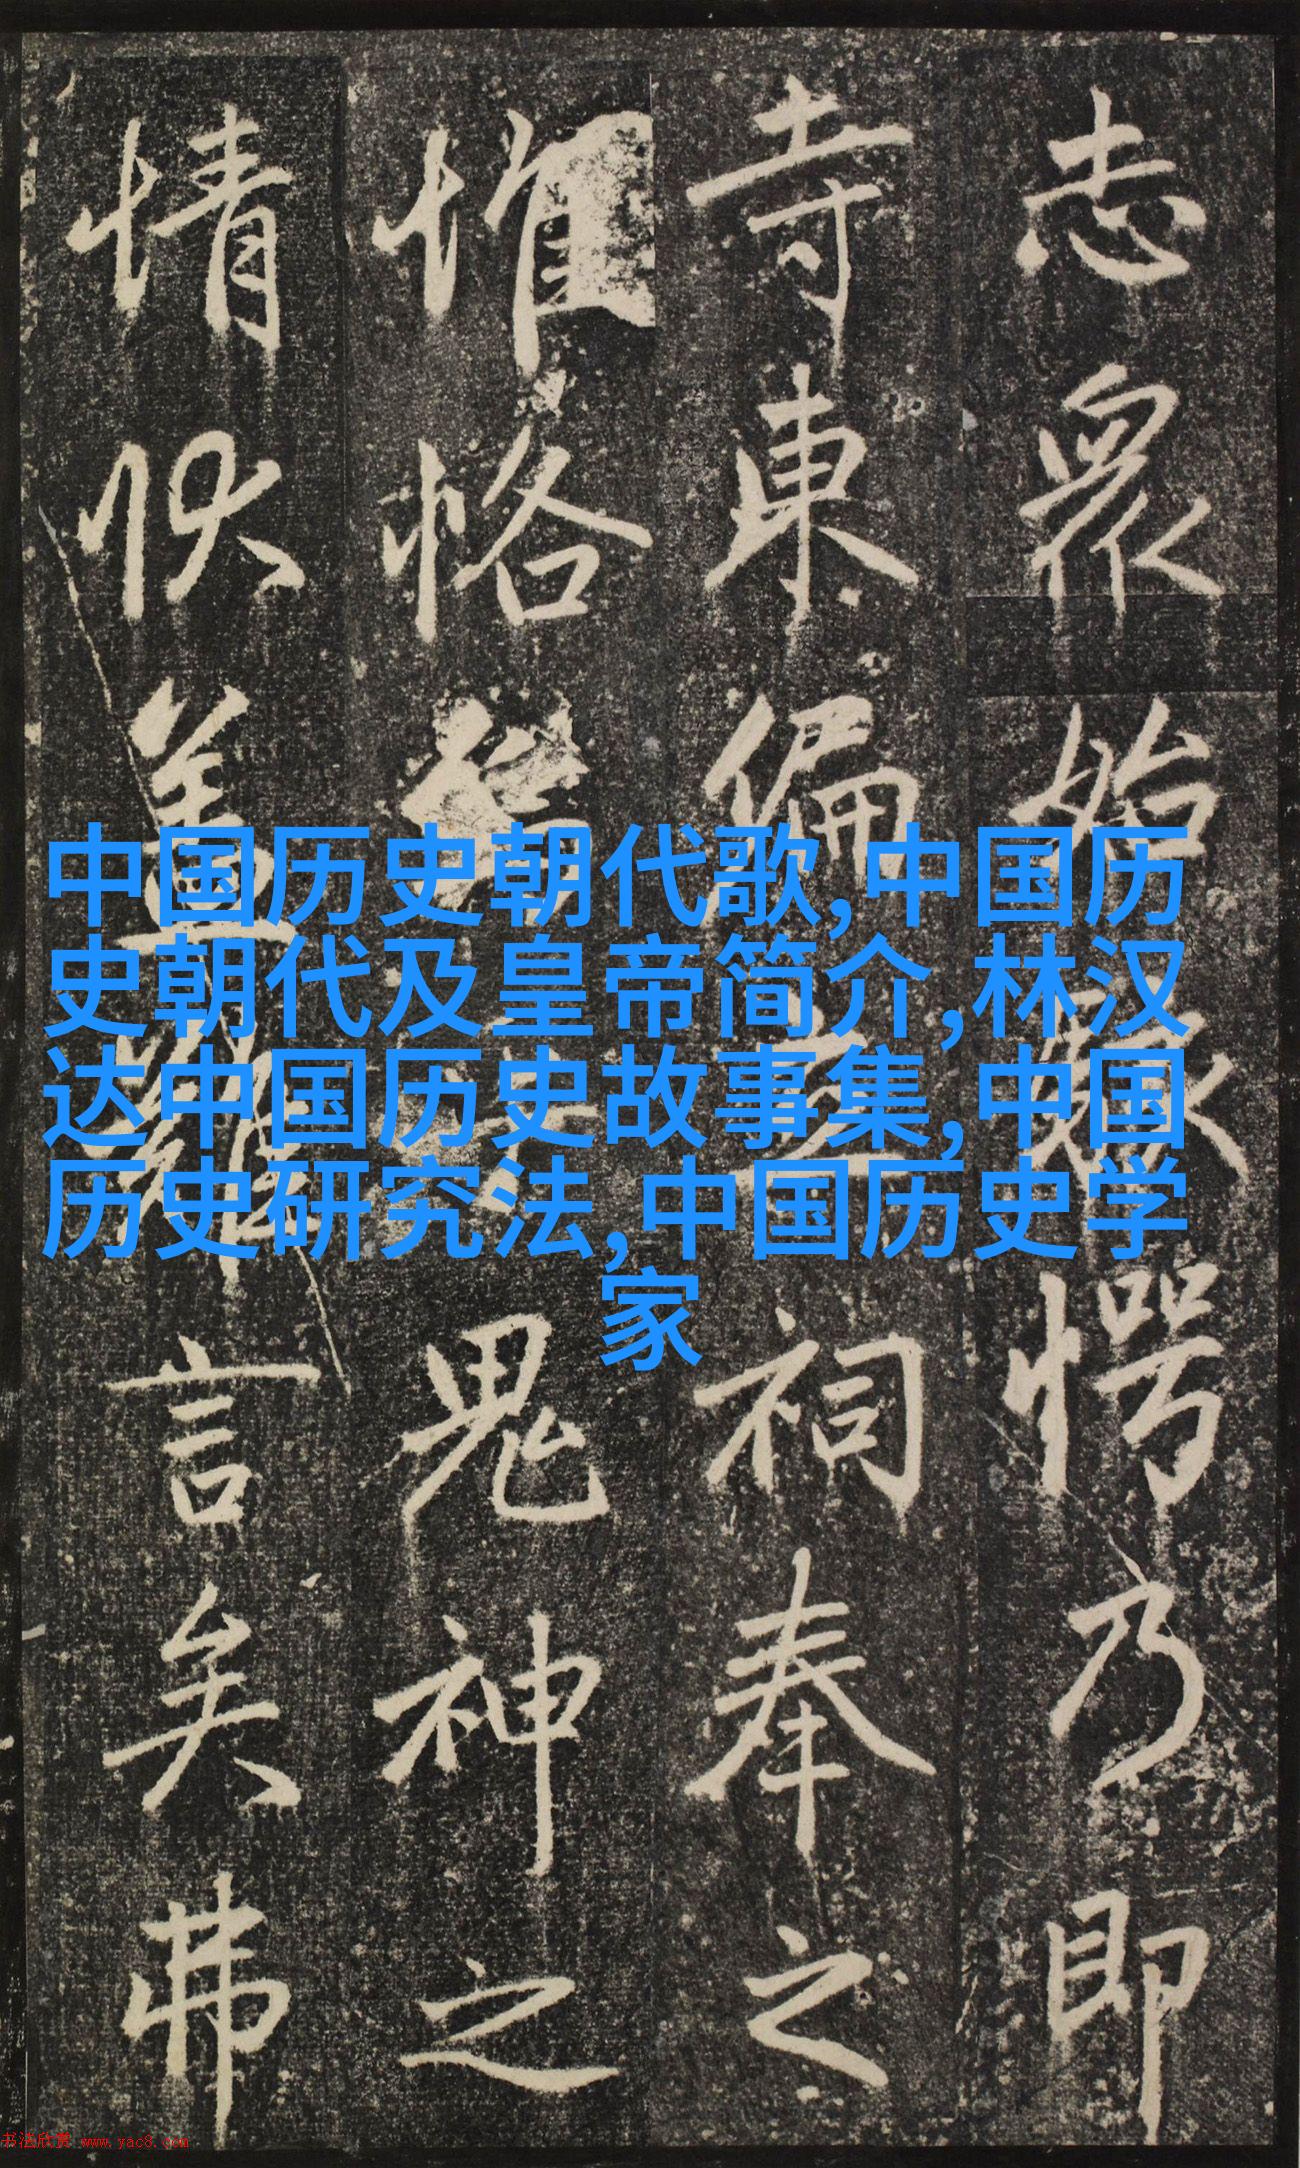 志眾始駭愕乃即
寺東偏立祠奉之
惟恪
鬼神之
情狀蓋難言矣弗
中国历史朝代歌,中国历
史朝代及皇帝简介,林汉
达中国历史故事集,中国
历史研究法,中国历史学
家
书法欣赏 www.yac8.com